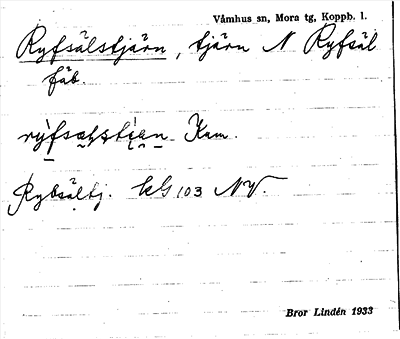 Våmhus sn, Mora tg, Koppb. l.
Ryfsälstjärn, tjärn N Ryfsäl
fäb.
Kam.
Rybsältj. kG 103 NV.
Bror Lindén 1933